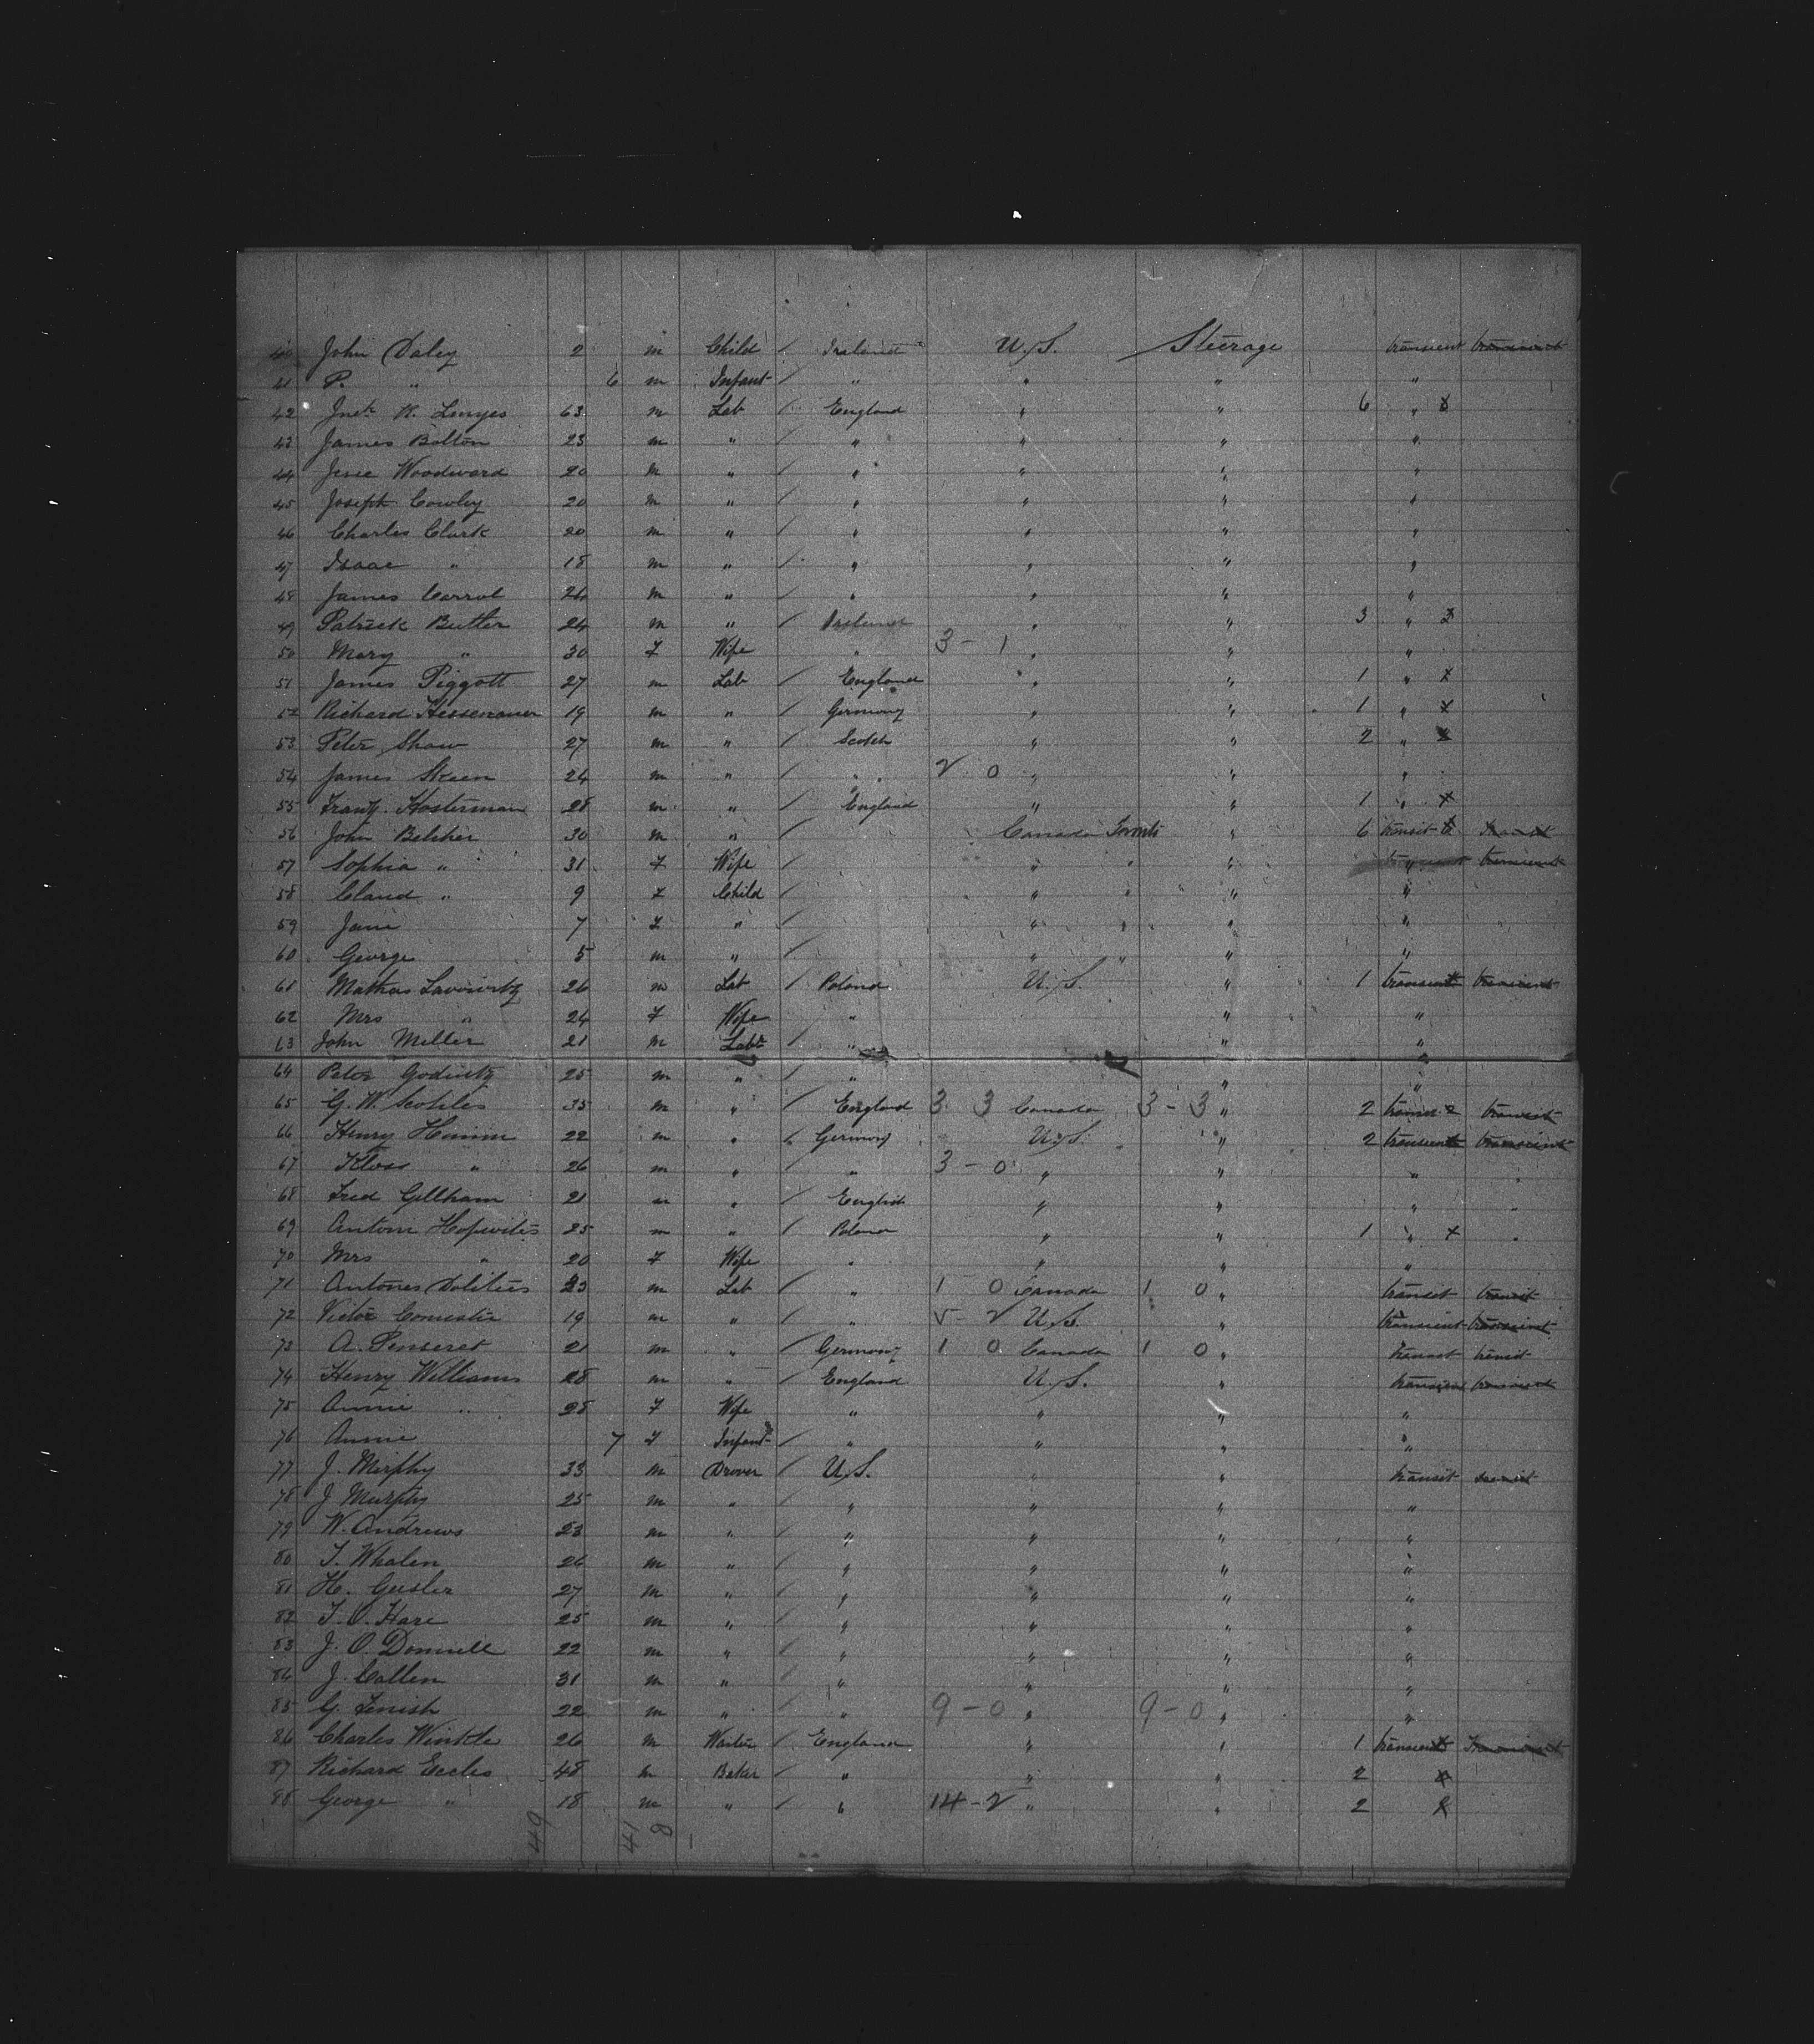 40 John Daley 2 m Child / Ireland U.S. Steerage transient transient
41 P. " 6 m Infant / " " " "
42 Jno. R. 63 m Lab / England " " 6 "
43 James Bolton 23 m " / " " " "
44 Jesse Woodward 20 m " / " " " "
45 Joseph Cowley 20 m " / " " " "
46 Charles Clark 20 m " / " " " "
47 Isaac " 18 m " / " " " "
48 James Carrol 26 m " / " " " "
49 Patrick Butler 24 m " / Ireland " " 3 "
50 Mary " 30 F Wife " 3 - 1 " " "
51 James Piggott 27 m Lab / England " " 1 " x
52 Richard 19 m " / Germany " " 1 " x
53 Peter Shaw 27 m " / Scotch " " 2 "
54 James Skeen 24 m " / " 2 0 " " "
55 Franz Kosterman 28 m " / England " " 1 " x
56 John Belcher 30 m " / Canada Toronto " 6 transit transit
57 Sophia " 31 F Wife / " " " " transient
58 Claud " 9 F Child / " " " "
59 Jane 7 F " / " " " "
60 George 5 m " / " " " "
61 Mathas 26 m Lab / Poland U.S. " 1 transient transient
62 Mrs " 24 F Wife " " "
63 John Miller 21 m Labr / " " "
64 Peter 25 m " / " " "
65 G. W. 35 m " / England 3 3 Canada 3 - 3 " 2 transit
66 Henry 22 m " Germany U.S. " 2 transient transient
67 Klaas " 26 m " / " 3 - 0 " " "
68 Fred Gillham 21 m " / English " " "
69 Antom 25 m " / Poland " " 1 " x
70 Mrs " 20 F Wife " " " "
71 Antones 23 m Lab / " 1 0 Canada 1 0 " transit transit
72 Victor 19 m " / " 5 - 2 U.S. " transient transient
73 A. 21 m " / Germany 1 0 Canada 1 0 " transit transit
74 Henry Williams 28 m " England U.S. " transient transient
75 Annie " 28 F Wife " " " "
76 Annie 7 F Infant / " " " "
77 J. Murphy 33 m Drover / U.S. " " transit transit
78 J Murphy 25 m " / " " " "
79 W. Andrews 23 m " / " " " "
80 T. Whalen 26 m " / " " " "
81 H. Geisler 27 m " / " " " "
82 T. O. Hare 25 m " / " " " "
83 J. O Donnell 22 m " / " " " "
84 J. Callen 31 m " / " " " "
85 G. 22 m " / " 9 - 0 " 9 - 0 " "
86 Charles Winkle 26 m Waiter / England " " 1 transient transient
87 Richard Eccles 48 m Baker / " " " 2
88 George " 18 m " / " 14 - 2 " " 2
49 41 8